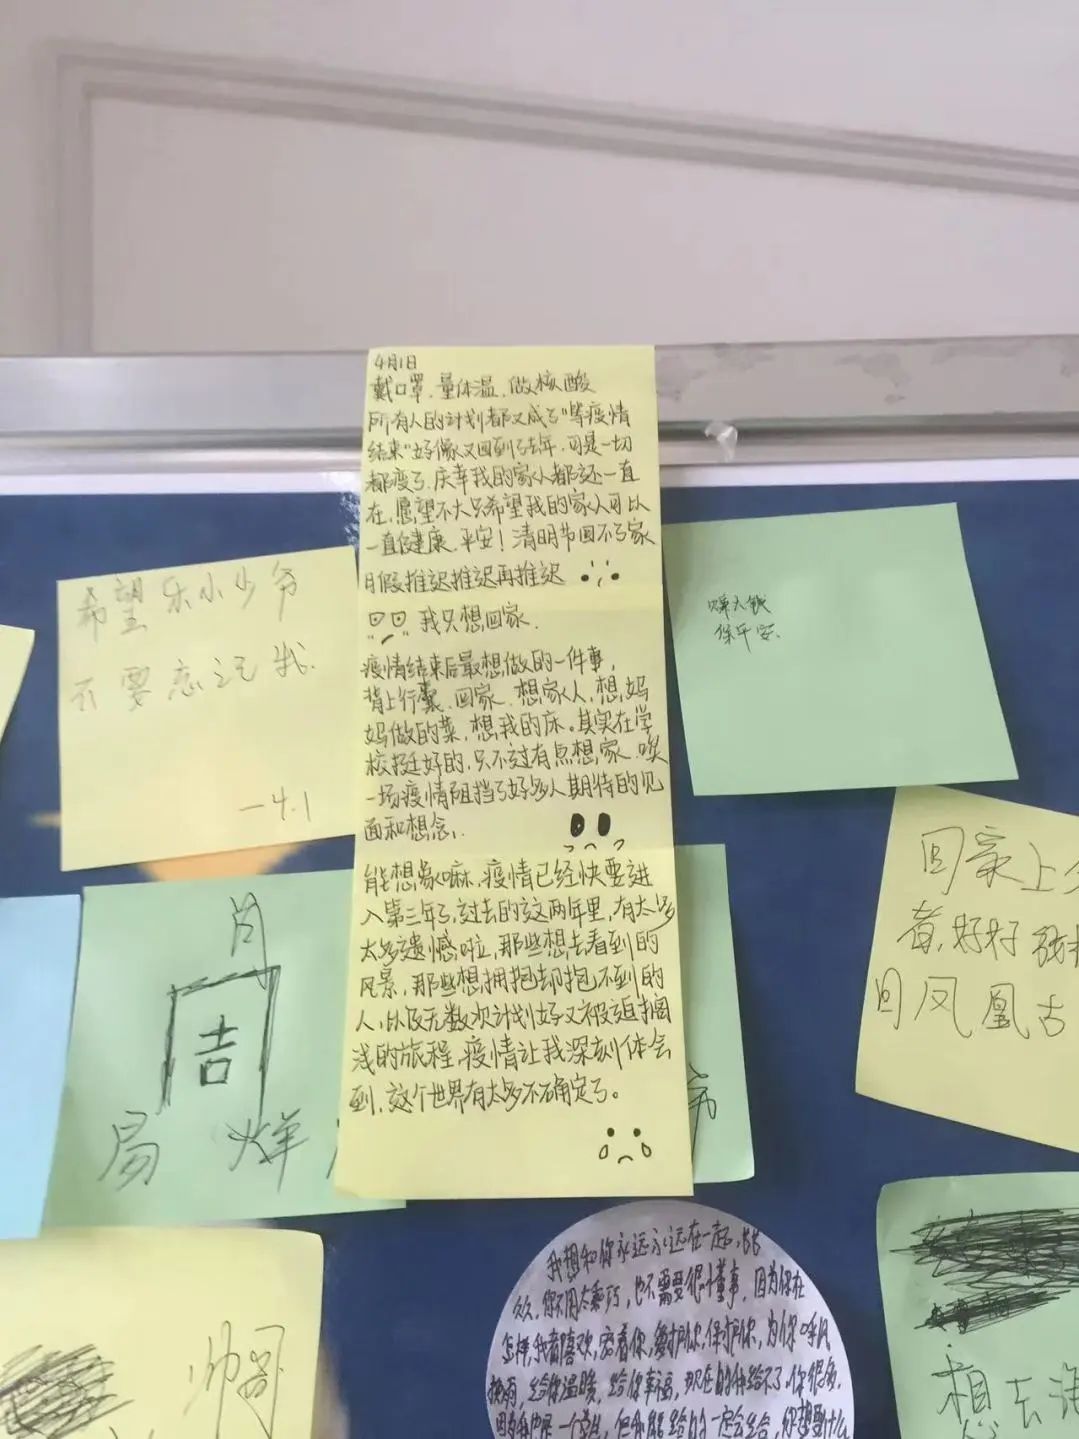 4月1日
戴口罩.量体温.做核酸
所有人的计划都又成了"等疫情
结束"好像又回到了去年.可是一切
都变了.庆幸我的家人都还一直
在.愿望不大只希望我的家人可以
一直健康.平安！清明节回不了家
月假推迟推迟再推迟
我只想回家.
疫情结束后最想做的一件事,
背上行囊.回家.想家人,想妈
妈做的菜,想我的床。其实在学
校挺好的.只不过有点想家.唉
一场疫情阻挡了好多人期待的见
面和想念.
能想象嘛.疫情已经快要进
入第三年了.过去的这两年里,有太多
太多遗憾啦,那些想去看到的
风景,那些想拥抱却抱不到的
人,以及无数次计划好又被迫搁
浅的旅程,疫情让我深刻体会
到,这个世界有太多不确定了。
希望乐小少爷
不要忘记我.
一4.1
赚大钱
保平安
回家上
着,好好
回凤凰古
周
吉
局 烊
帅哥
我想和你永远永远在一起,长长
久久,你不用太乖巧,也不需要很懂事,因为你在
怎样,我都喜欢,
保护你,为你呼风
唤雨,给你温暖,给你幸福,现在的我给不了你很多,
因为我也是一个学生,但我能给的一定会给,你想要什么
想去